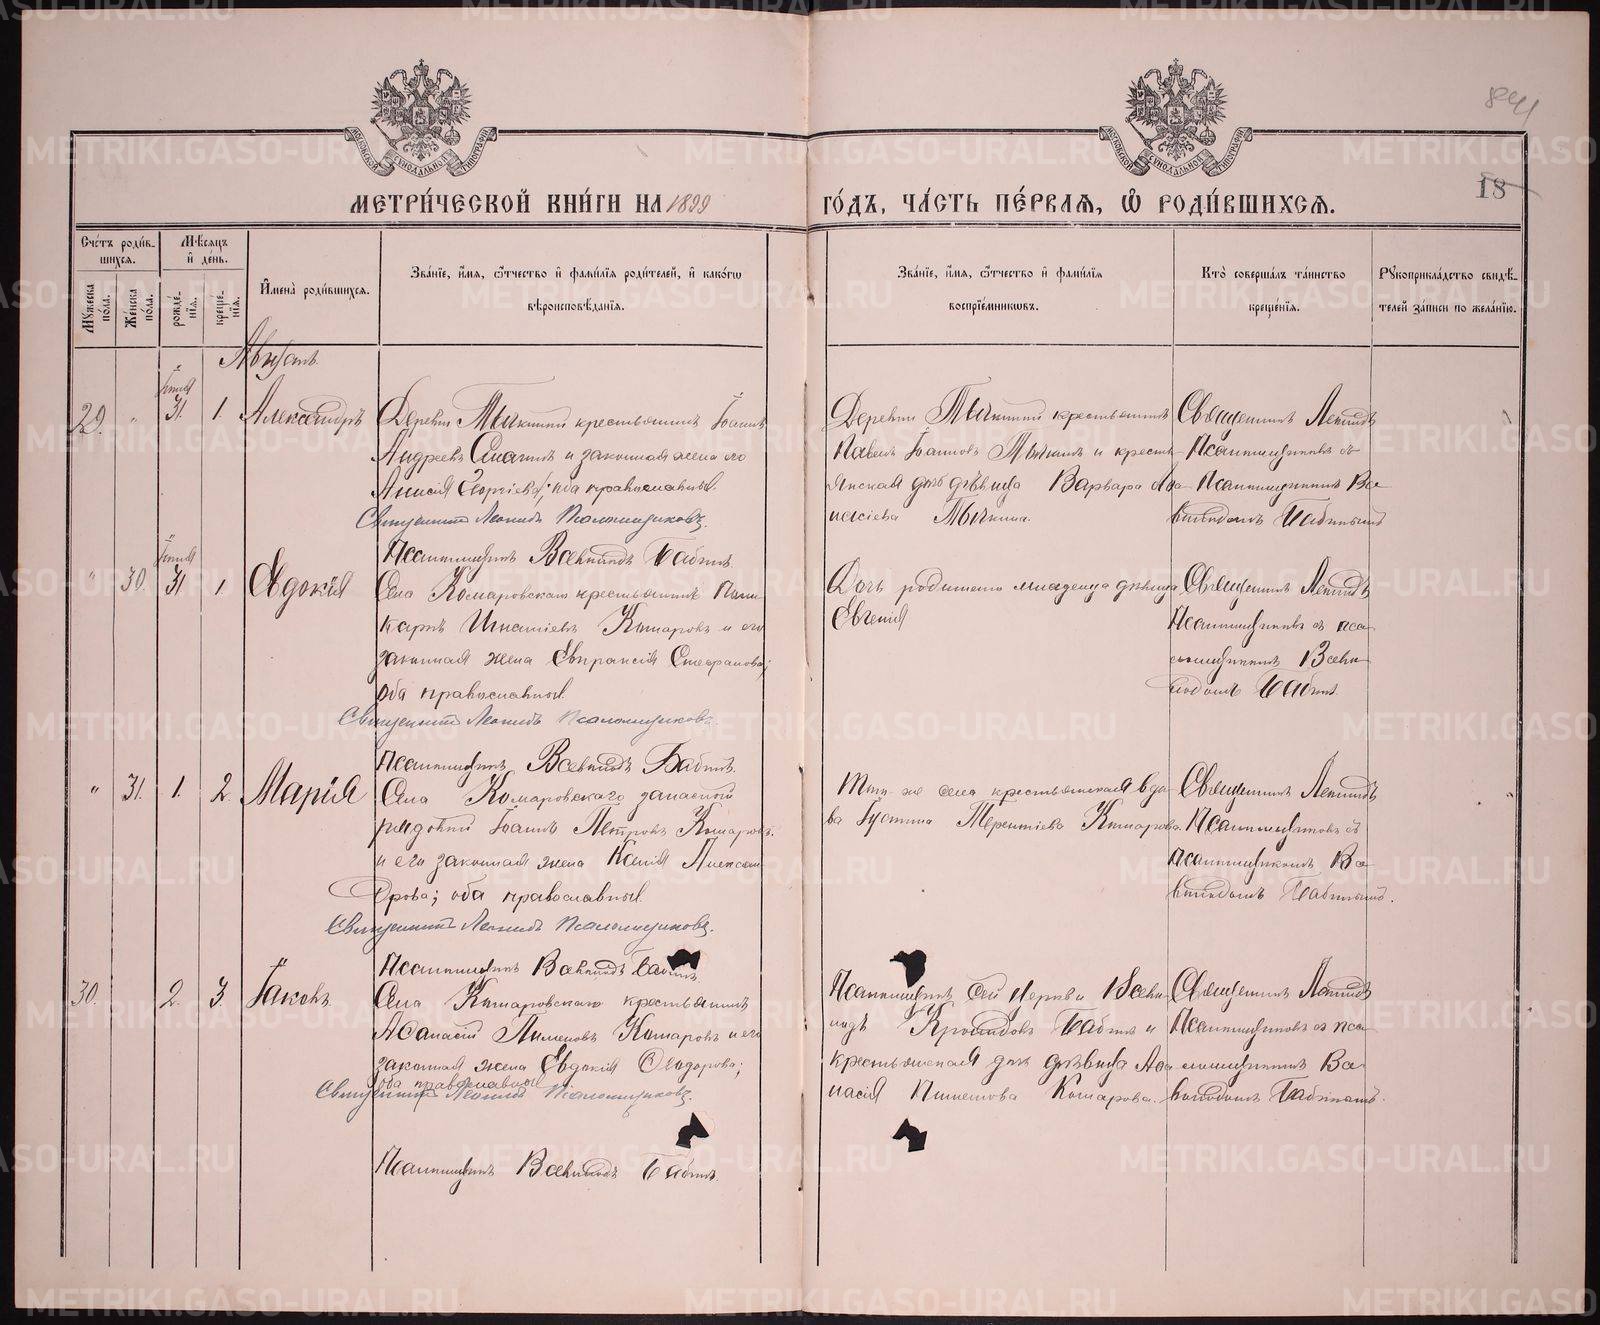 МЕТРИ́ЧЕСКОЙ КНИ́ГИ НА 1899
ГО́ДЪ, ЧА́СТЬ ПЕ́РВАЯ, Ѽ РОДИ́ВШИХСЯ.
18
Сче́тъ роди́в-
шихся.
Мѣ́сяцъ
и҆ де́нь.
Мꙋ́жеска
по́ла.
Же́нска
по́ла.
рожде́-
нїя.
креще́-
нїя.
И҆мена̀ роди́вшихся.
Зва́нїе, и҆́мя, ѻ҆́тчество и҆ фами́лїя роди́телей, и҆ како́гѡ
вѣроисповѣ́данїя.
Зва́нїе, и҆́мя, ѻ҆́тчество и҆ фами́лїя
воспрїе́мникѡвъ.
Кто̀ соверша́лъ та́инство
креще́нїя.
Рꙋкоприкла́дство свидѣ́-
телей за́писи по жела́нїю.
Августъ
29. " Іюля 31. 1. Александръ
Деревни Тычкиной крестьянинъ Іоаннъ
Андреевъ и законная жена его
Анисія Георгіева; оба православные.
Священникъ Леонидъ Псаломщиковъ.
Псаломщикъ Всеволодъ Бабинъ
Деревни крестьянинъ
Павелъ Іоанновъ и кресть-
янская дочь дѣвица Варвара Аѳа-
насіева
Священникъ Леонидъ
Псаломщиковъ съ
Псаломщикомъ Все-
володомъ Бабинымъ
" 30. Іюля 31. 1. Евдокія
Села Комаровскаго крестьянинъ Поли-
карпъ Игнатіевъ Комаровъ и его
законная жена Евпраксія Стефанова;
оба православные
Священникъ Леонидъ Псаломщиковъ.
Псаломщикъ Всеволодъ Бабинъ.
Дочь родителя младенца дѣвица
Евгенія
Священникъ Леонидъ
Псаломщиковъ съ пса-
ломщикомъ Всево-
лодомъ Бабин.
" 31. 1. 2. Марія
Села Комаровскаго запасный
рядовой Іоаннъ Петровъ Комаровъ
и его законная жена Ксенія Алексан-
дрова; оба православные
Священникъ Леонидъ Псаломщиковъ.
Псаломщикъ Всеволодъ Бабинъ.
Того-же села крестьянская вдо-
ва Іустина Терентіева Комарова.
Священникъ Леонидъ
Псаломщиковъ съ
Псаломщикомъ Все-
володомъ Бабинымъ.
30. 2. 3. Іаковъ.
Села Комаровскаго крестьянинъ
Аѳанасій Пименовъ Комаровъ и его
законная жена Евдокія Ѳеодорова;
оба православные
Священникъ Леонидъ Псаломщиковъ.
Псаломщикъ Всеволодъ Бабинъ.
Псаломщикъ сей церкви Всево-
лодъ Бабинъ и
крестьянская дочь дѣвица Аѳа-
насія Пименова Комарова.
Священникъ Леонидъ
Псаломщиковъ съ пса-
ломщикомъ Все-
володомъ Бабинымъ.
METRIKI.GASO-URAL.RU